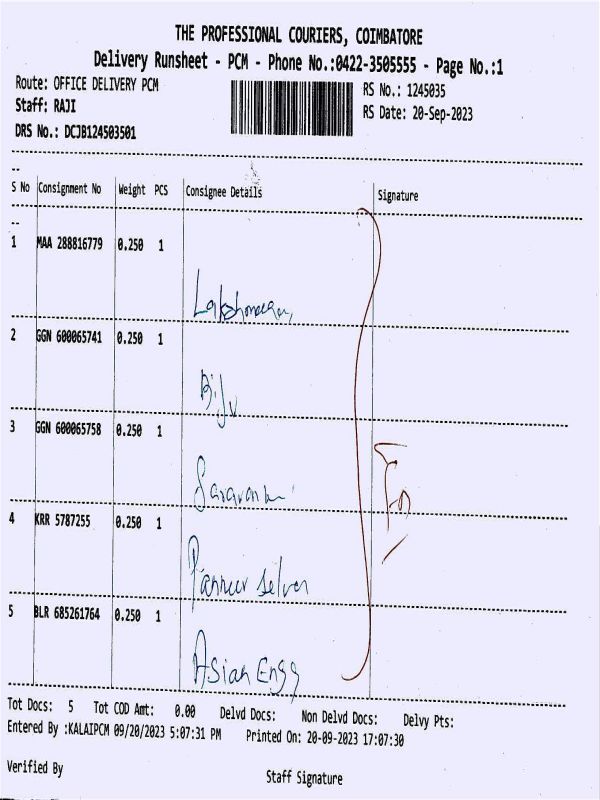 THE PROFESSIONAL COURIERS, COIMBATORE
Delivery Runsheet - PCM - Phone No.:0422-3505555 - Page No.:1
Route: OFFICE DELIVERY PCM RS No.: 1245035
Staff: RAJI RS Date: 20-Sep-2023
DRS No.: DCJB124503501
--
S No Consignment No Weight PCS Consignee Details Signature
--
1 MAA 288816779 0.250 1
Lakshmanan,
2 GGN 600065741 0.250 1
Biju
3 GGN 600065758 0.250 1
4 KRR 5787255 0.250 1
Panneer selvan
5 BLR 685261764 0.250 1
Asian Engg
Tot Docs: 5 Tot COD Amt: 0.00 Delvd Docs: Non Delvd Docs: Delvy Pts:
Entered By :KALAIPCM 09/20/2023 5:07:31 PM Printed On: 20-09-2023 17:07:30
Verified By Staff Signature